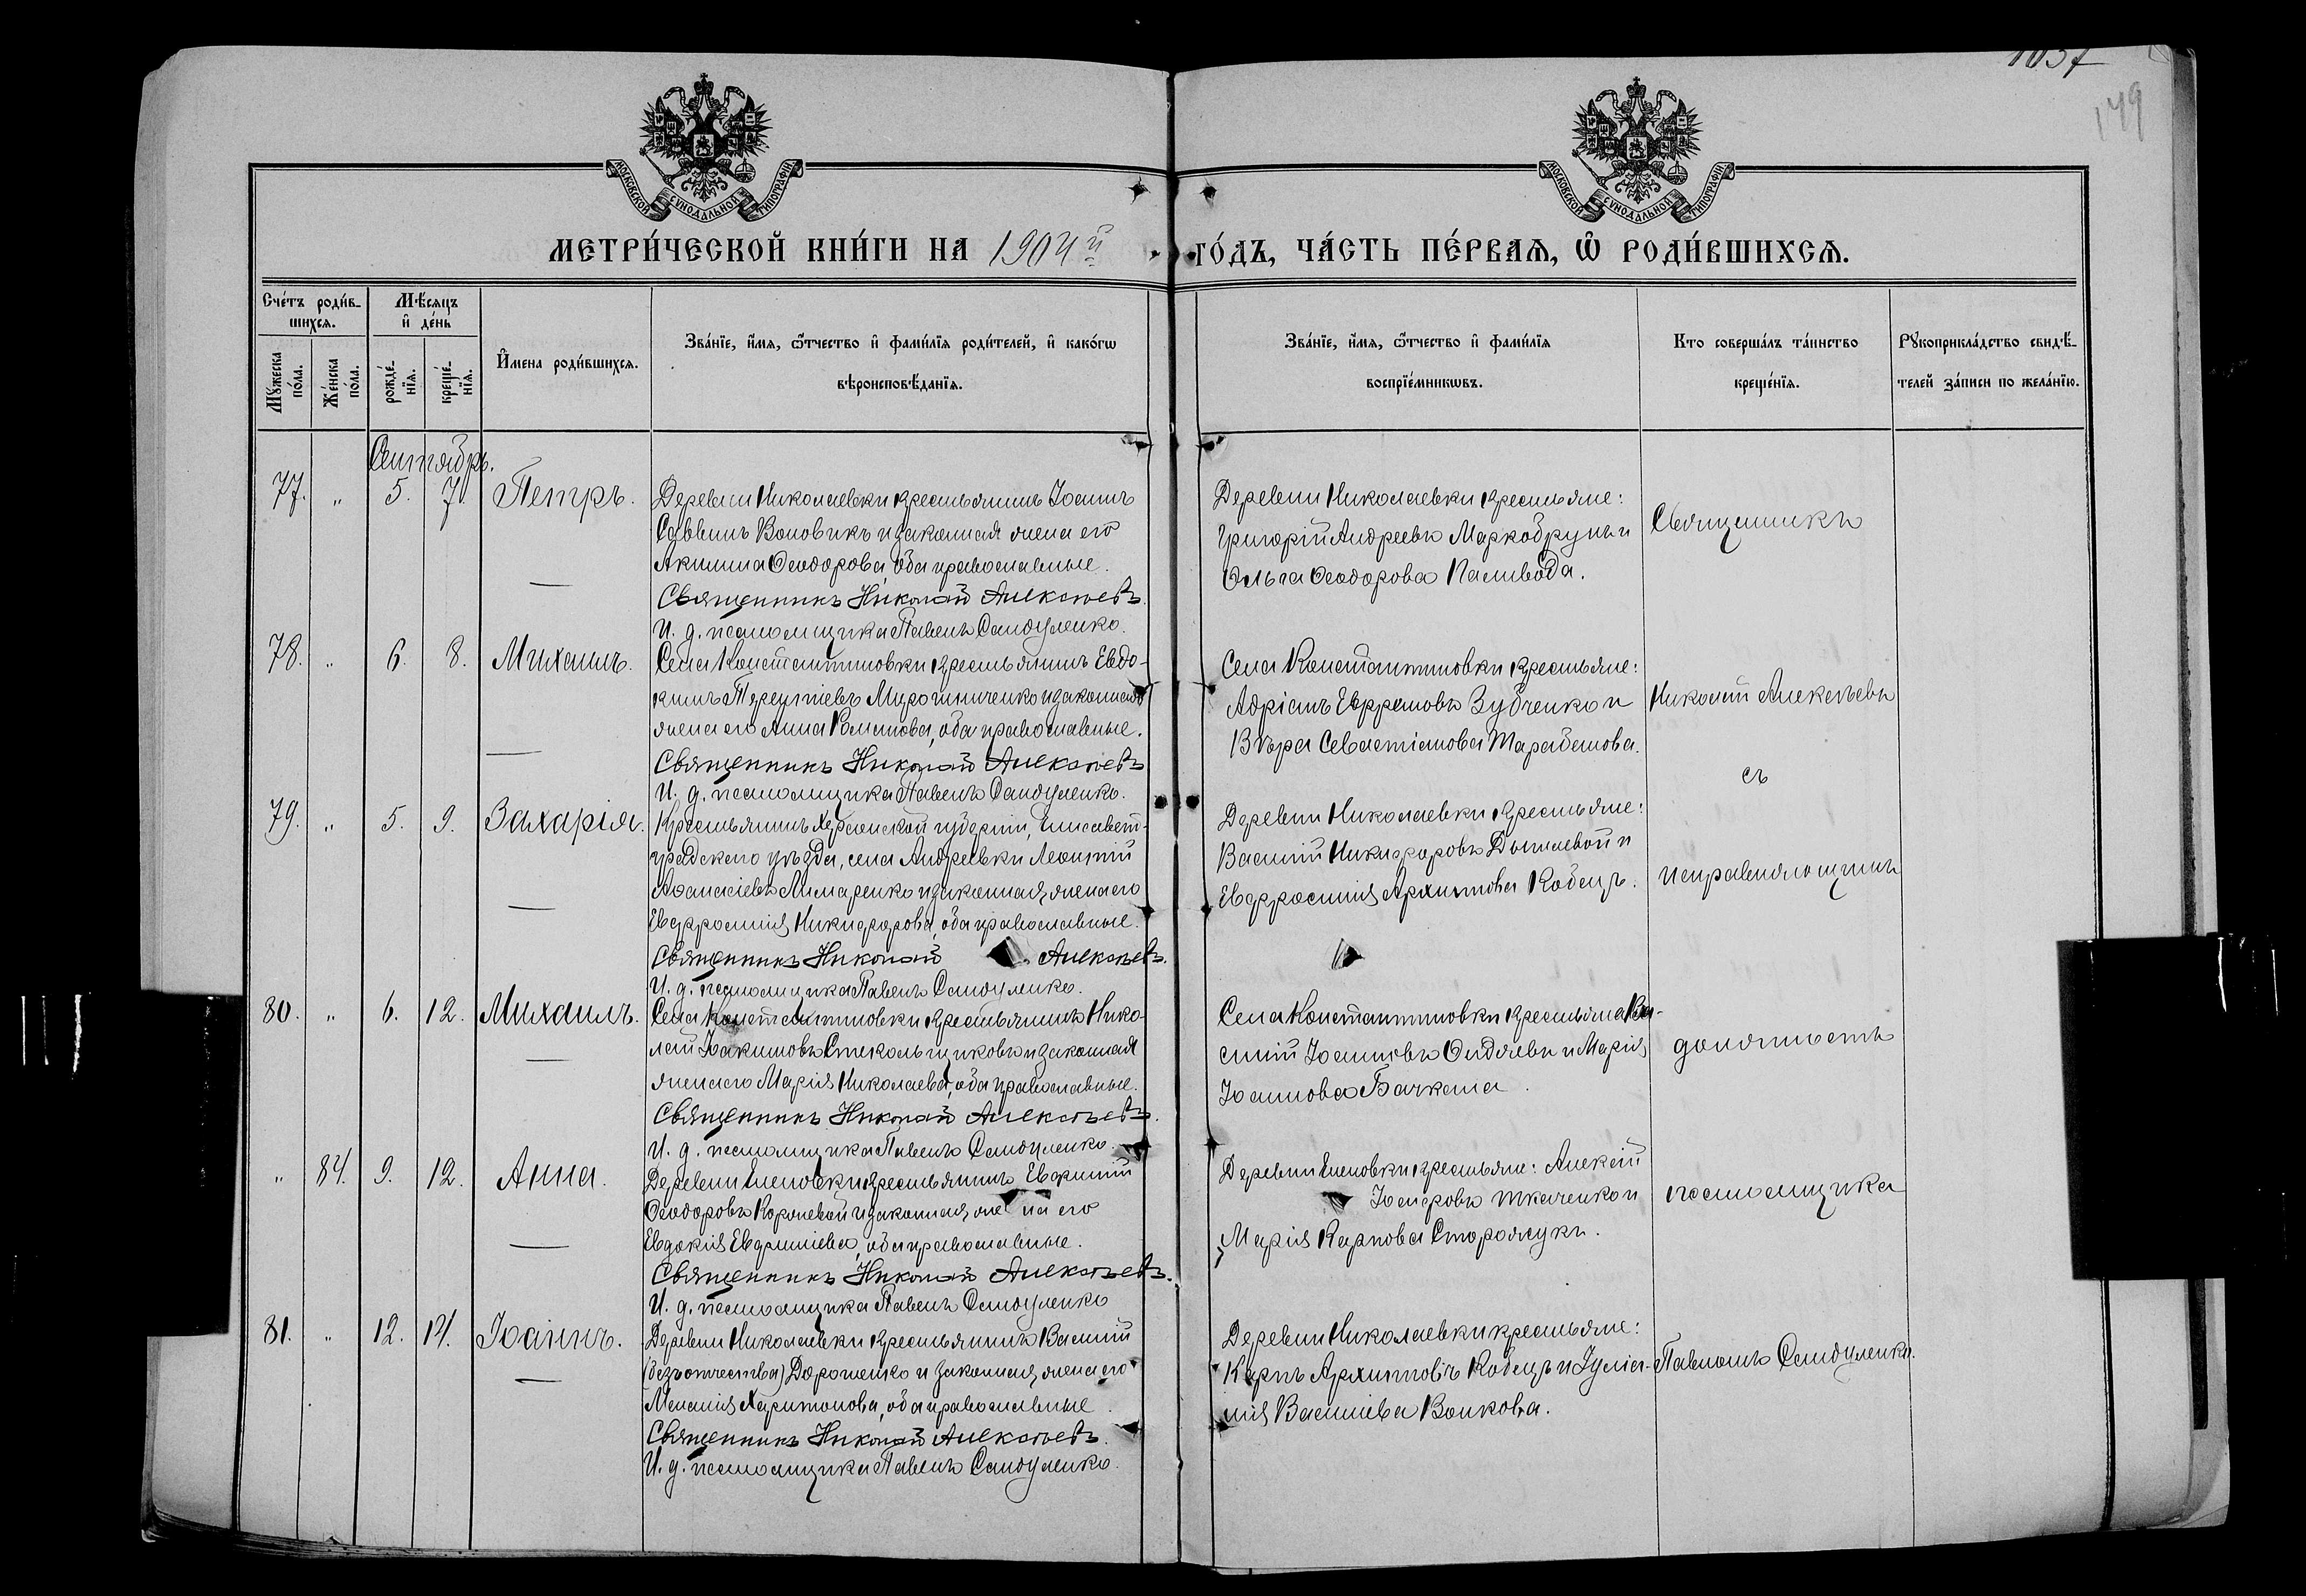 1037
149
МОСКОВСКОЙ СѴНОДАЛЬНОЙ ТИПОГРАФІИ
МОСКОВСКОЙ СѴНОДАЛЬНОЙ ТИПОГРАФІИ
МЕТРИ́ЧЕСКОЙ КНИ́ГИ НА 1904й
ГО́ДЪ, ЧА́СТЬ ПЕ́РВАЯ, Ѡ҆ РОДИ́ВШИХСЯ.
Сче́тъ роди́в-
шихся.
Мѣ́сяцъ
и҆ де́нь
Мꙋ́жеска по́ла.
Же́нска по́ла.
рожде́нїя.
креще́нїя.
И҆мена роди́вшихся.
Зва́нїе, и҆́мя, ѻ҆́тчество и҆ фами́лїя роди́телей, и҆ како́гѡ
вѣроисповѣ́данїя.
Зва́нїе, и҆́мя, ѻ҆́тчество и҆ фами́лїя
воспрїе́мникѡвъ.
Кто соверша́лъ та́инство
креще́нїя.
Рꙋкоприкла́дство свидѣ́-
телей за́писи по жела́нїю.
Сентябрь.
77. " 5. 7. Петръ.
Деревни Николаевки крестьянинъ Іоаннъ
Саввинъ Воловикъ и законная жена его
Акилина Ѳеодорова, оба православные.
Священникъ Николай Алексѣевъ.
И. д. псаломщика Павелъ Сандуленко.
Деревни Николаевки крестьяне:
Григорій Андреевъ Маркобрунъ и
Ольга Ѳеодорова Паливода.
Священникъ
78. " 6. 8. Михаилъ.
Села Константиновки крестьянинъ Евдо-
кимъ Терентіевъ Мирошниченко и законная
жена его Анна Романова, оба православные.
Священникъ Николай Алексѣевъ
И. д. псаломщика Павелъ Сандуленко.
Села Константиновки крестьяне:
Адріанъ Ефремовъ Зубченко и
Вѣра Севастіанова Тарабанова.
Николай Алексѣевъ
съ
79. " 5. 9. Захарія.
Крестьянинъ Херсонской губерніи, Елисавет-
градскаго уѣзда, села Андреевки Леонтій
Аѳанасіевъ Лимаренко и законная жена его
Евфросинія Никифорова, оба православные.
Священникъ Николай Алексѣевъ.
И. д. псаломщика Павелъ Сандуленко.
Деревни Николаевки крестьяне:
Василій Никифоровъ и
Евфросинія Архипова Кобецъ.
исправляющимъ
80. " 6. 12. Михаилъ.
Села Константиновки крестьянинъ Нико-
лай Іоакимовъ Стекольщиковъ и законная
жена его Марія Николаева, оба православные.
Священникъ Николай Алексѣевъ.
И. д. псаломщика Павелъ Сандуленко.
Села Константиновки крестьяне Ва-
силій Іоанновъ и Марія
Іоаннова
должность
" 84. 9. 12. Анна.
Деревни Еленовки крестьянинъ Евфимій
Ѳеодоровъ Королевой и законная жена его
Евдокія Евфиміева, оба православные.
Священникъ Николай Алексѣевъ.
И. д. псаломщика Павелъ Сандуленко
Деревни Еленовки крестьяне: Алексій
Іосифовъ Ткаченко и
Марія Карпова Сторожукъ.
псаломщика
81. " 12. 14. Іоаннъ.
Деревни Николаевки крестьянинъ Василій
(безъ отчества) Дорошенко и законная жена его
Меланія Харитонова, оба православные.
Священникъ Николай Алексѣевъ.
И. д. псаломщика Павелъ Сандуленко.
Деревни Николаевки крестьяне:
Карпъ Архиповъ Кобецъ и Іуліа-
нія Василіева Волкова.
Павломъ Сандуленко.